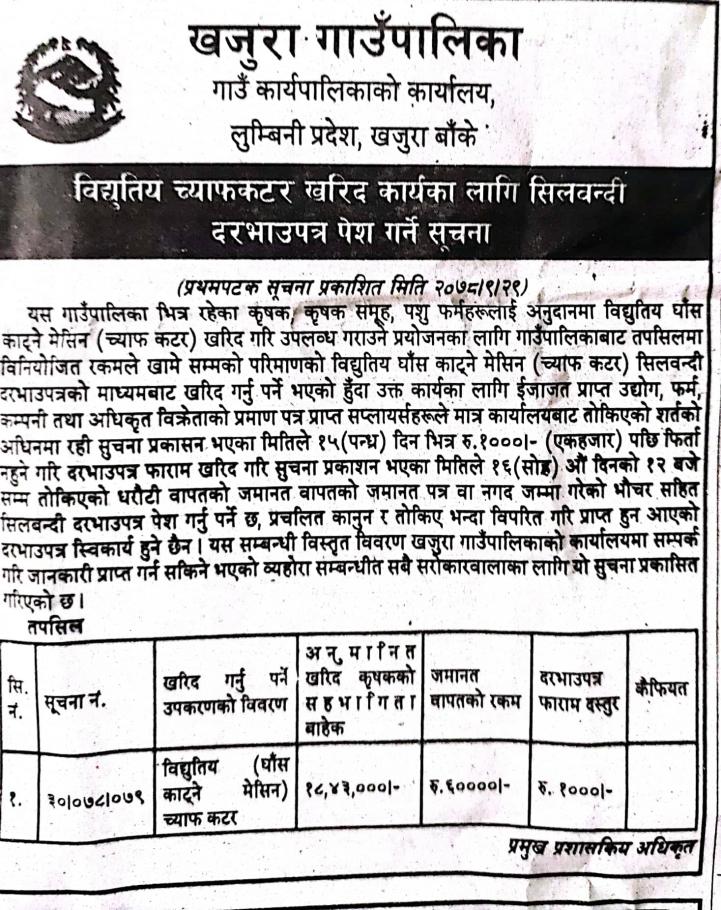 खजुरा गाउँपालिका
गाउँ कार्यपालिकाको कार्यालय,
लुम्बिनी प्रदेश, खजुरा बाँके
विद्युतिय च्याफकटर खरिद कार्यका लागि सिलवन्दी
दरभाउपत्र पेश गर्ने सूचना
(प्रथमपटक सूचना प्रकाशित मिति २०७८।९।२९)
यस गाउँपालिका भित्र रहेका कृषक, कृषक समूह, पशु फर्महरूलाई अनुदानमा विद्युतिय घाँस
काट्ने मेसिन (च्याफ कटर) खरिद गरि उपलब्ध गराउने प्रयोजनका लागि गाउँपालिकाबाट तपसिलमा
विनियोजित रकमले खामे सम्मको परिमाणको विद्युतिय घाँस काट्ने मेसिन (च्याफ कटर) सिलवन्दी
दरभाउपत्रको माध्यमबाट खरिद गर्नु पर्ने भएको हुँदा उक्त कार्यका लागि ईजाजत प्राप्त उद्योग, फर्म,
कम्पनी तथा अधिकृत विक्रेताको प्रमाण पत्र प्राप्त सप्लायर्सहरूले मात्र कार्यालयबाट तोकिएको शर्तको
अधिनमा रही सुचना प्रकासन भएका मितिले १५(पन्ध्र) दिन भित्र रु.१०००।- (एकहजार) पछि फिर्ता
नहुने गरि दरभाउपत्र फाराम खरिद गरि सुचना प्रकाशन भएका मितिले १६(सोह्र) औं दिनको १२ बजे
सम्म तोकिएको धरौटी वापतको जमानत वापतको जमानत पत्र वा नगद जम्मा गरेको भौचर सहित
सिलवन्दी दरभाउपत्र पेश गर्नु पर्ने छ, प्रचलित कानुन र तोकिए भन्दा विपरित गरि प्राप्त हुन आएको
दरभाउपत्र स्विकार्य हुने छैन । यस सम्बन्धी विस्तृत विवरण खजुरा गाउँपालिकाको कार्यालयमा सम्पर्क
गरि जानकारी प्राप्त गर्न सकिने भएको व्यहोरा सम्बन्धीत सबै सरोकारवालाका लागि यो सुचना प्रकासित
गरिएको छ ।
तपसिल
सि. नं.
सूचना नं.
खरिद गर्नु पर्ने
उपकरणको विवरण
अनुमानित
खरिद कृषकको
सहभागिता
बाहेक
जमानत
वापतको रकम
दरभाउपत्र
फाराम दस्तुर
कैफियत
१.
३०।०७८।०७९
विद्युतिय (घाँस
काट्ने मेसिन)
च्याफ कटर
१८,४३,०००।-
रु.६००००।-
रु. १०००।-
प्रमुख प्रशासकिय अधिकृत